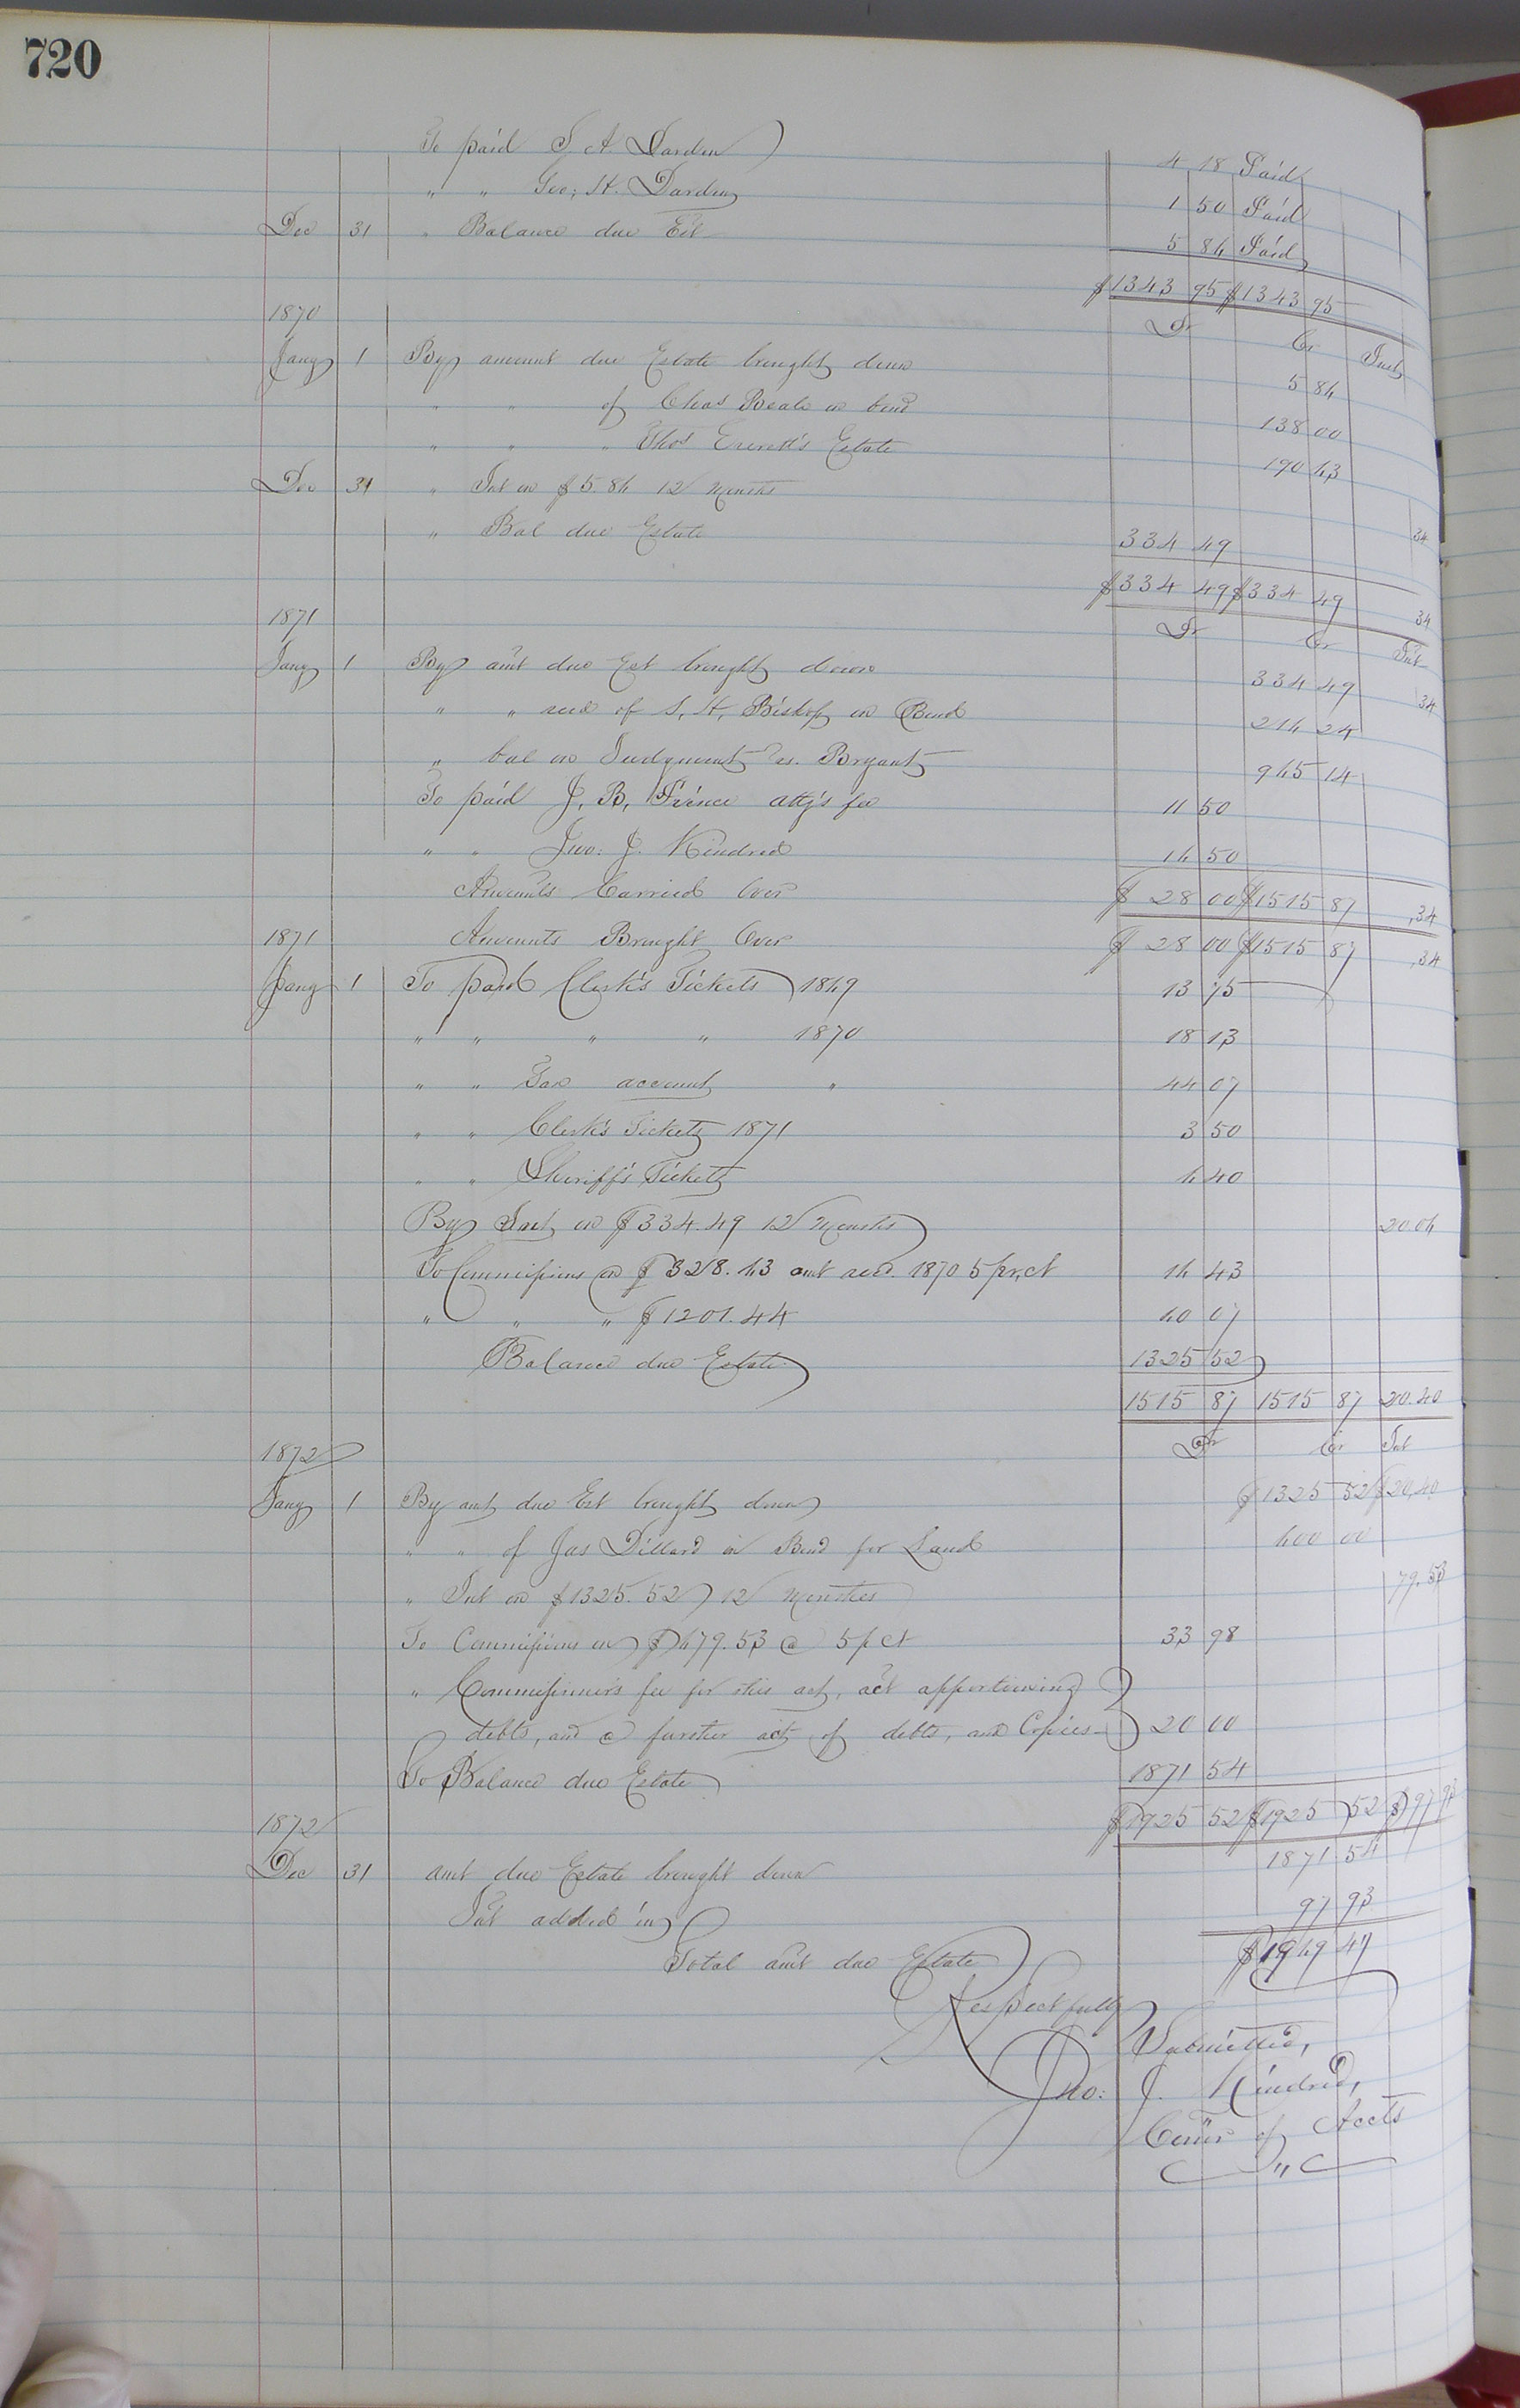 720
To paid S. A. Darden 4 18 Paid
" " Geo; H. Darden 1 50 Paid
Dec 31 " Balance due Est 5 86 Paid
$1343 95 $1343 95
1870 Dr Cr Int
Jany 1 By amount due Estate brought down 5 86
" " of Chas Beale on bond 138 00
" " " Thos Everett's Estate 190 63
Dec 31 " Int on $5.86 12 Months 34
" Bal due Estate 334 49
$334 49 $334 49 34
1871 Dr Cr Int
Jany 1 By amt due Est brought down 334 49 34
" " recd of S. H. Bishop on Bond 216 24
" bal on Judgment vs. Bryant 965 14
To paid J. B. Prince atty's fee 11 50
" " Jno: J. Kindred 16 50
Amounts Carried Over $28 00 $1515 87 ,34
1871 Amounts Brought Over $28 00 $1515 87 ,34
Jany 1 To paid Clerk's Tickets 1869 13 75
" " " " 1870 18 13
" " Tax account " 44 07
" " Clerk's Tickets 1871 3 50
" " Sheriff's Tickets 6 40
By Int on $334.49 12 Months 20.06
To Commissions on $328.63 amt recd. 1870 5 pr.ct 16 43
" " " $1201.44 60 07
Balance due Estate 1325 52
1515 87 1515 87 20.40
1872 Dr Cr Int
Jany 1 By amt due Est brought down $1325 52 $20,40
" " of Jas Dillard on Bond for Land 600 00
" Int on $1325.52 12 Months 79.53
To Commissions on $679.53 @ 5 p ct 33 98
" Commissioner's fee for this act, act apportioning
debts, and a further act of debts, and Copies 20 00
To Balance due Estate 1871 54
1872 $1925 52 $1925 52 $97 93
Dec 31 amt due Estate brought down 1871 54
Int added in 97 93
Total amt due Estate $1969 47
Respectfully
Submitted,
Jno: J. Kindred,
Comr of Accts